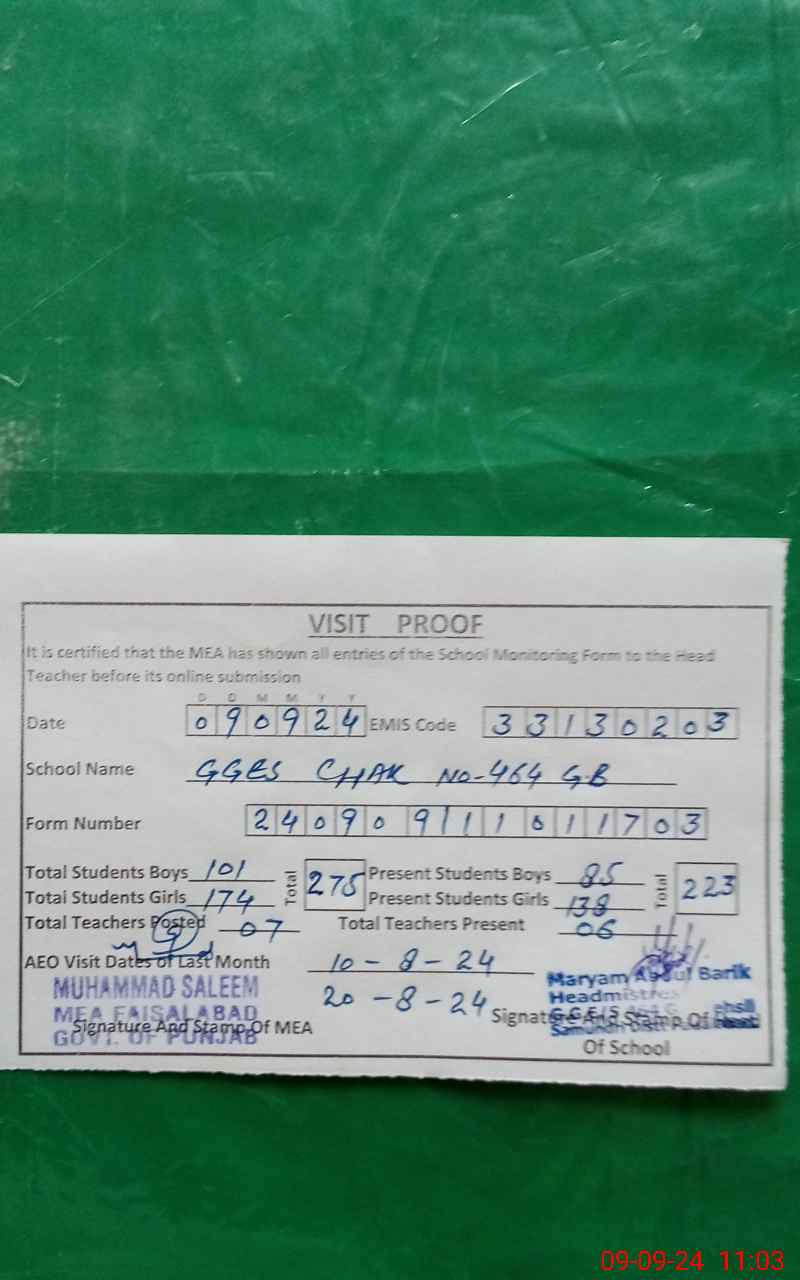 VISIT PROOF
It is certified that the MEA has shown all entries of the School Monitoring Form to the Head
Teacher before its online submission
D D M M Y Y
Date 090924 EMIS Code 33130203
School Name GGES CHAK NO-464 GB
Form Number 240909111011703
Total Students Boys 101 Total 275 Present Students Boys 85 Total 223
Total Students Girls 174 Present Students Girls 138
Total Teachers Posted 07 Total Teachers Present 06
AEO Visit Dates of Last Month 10-8-24
20-8-24
MUHAMMAD SALEEM
MEA FAISALABAD
GOVT. OF PUNJAB
Signature And Stamp Of MEA
Maryam Abdul Barik
Headmistres
Signature And Stamp Of Head
Of School
09-09-24 11:03